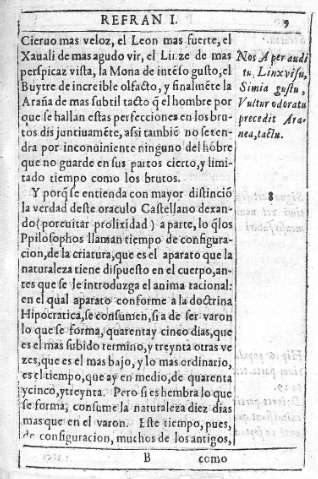 REFRAN I.
9
Cieruo mas veloz, el Leon mas fuerte, el
Xauali de mas agudo vir, el Linze de mas
perspicaz vista, la Mona de intẽso gusto, el
Buytre de increible olfacto, y finalmẽte la
Araña de mas subtil tacto q̃ el hombre por
que se hallan estas perfecciones en los bru
tos disjuntiuamẽte, assi tambiẽ no se ten-
dra por inconuiniente ninguno del hõbre
que no guarde en sus partos cierto, y limi-
tado tiempo como los brutos.
Y porq̃ se entienda con mayor distinciõ
la verdad deste oraculo Castellano dexan-
do (por euitar prolixidad) a parte, lo q̃ los
Philosophos llaman tiempo de configura-
cion, de la criatura, que es el aparato que la
naturaleza tiene dispuesto en el cuerpo, an-
tes que se le introduzga el anima racional:
en el qual aparato conforme a la doctrina
Hipocratica, se consumen, si a de ser varon
lo que se forma, quarenta y cinco dias, que
es el mas subido termino, y treynta otras ve
zes, que es el mas bajo, y lo mas ordinario,
es el tiempo, que ay en medio, de quarenta
y cinco, y treynta. Pero si es hembra lo que
se forma, consume la naturaleza diez dias
mas que en el varon. Este tiempo, pues,
de configuracion, muchos de los antigos,
B
como
Nos Aper audi
tu, Linx visu,
Simia gustu,
Vultur odoratu
precedit Ara-
nea, tactu.
8